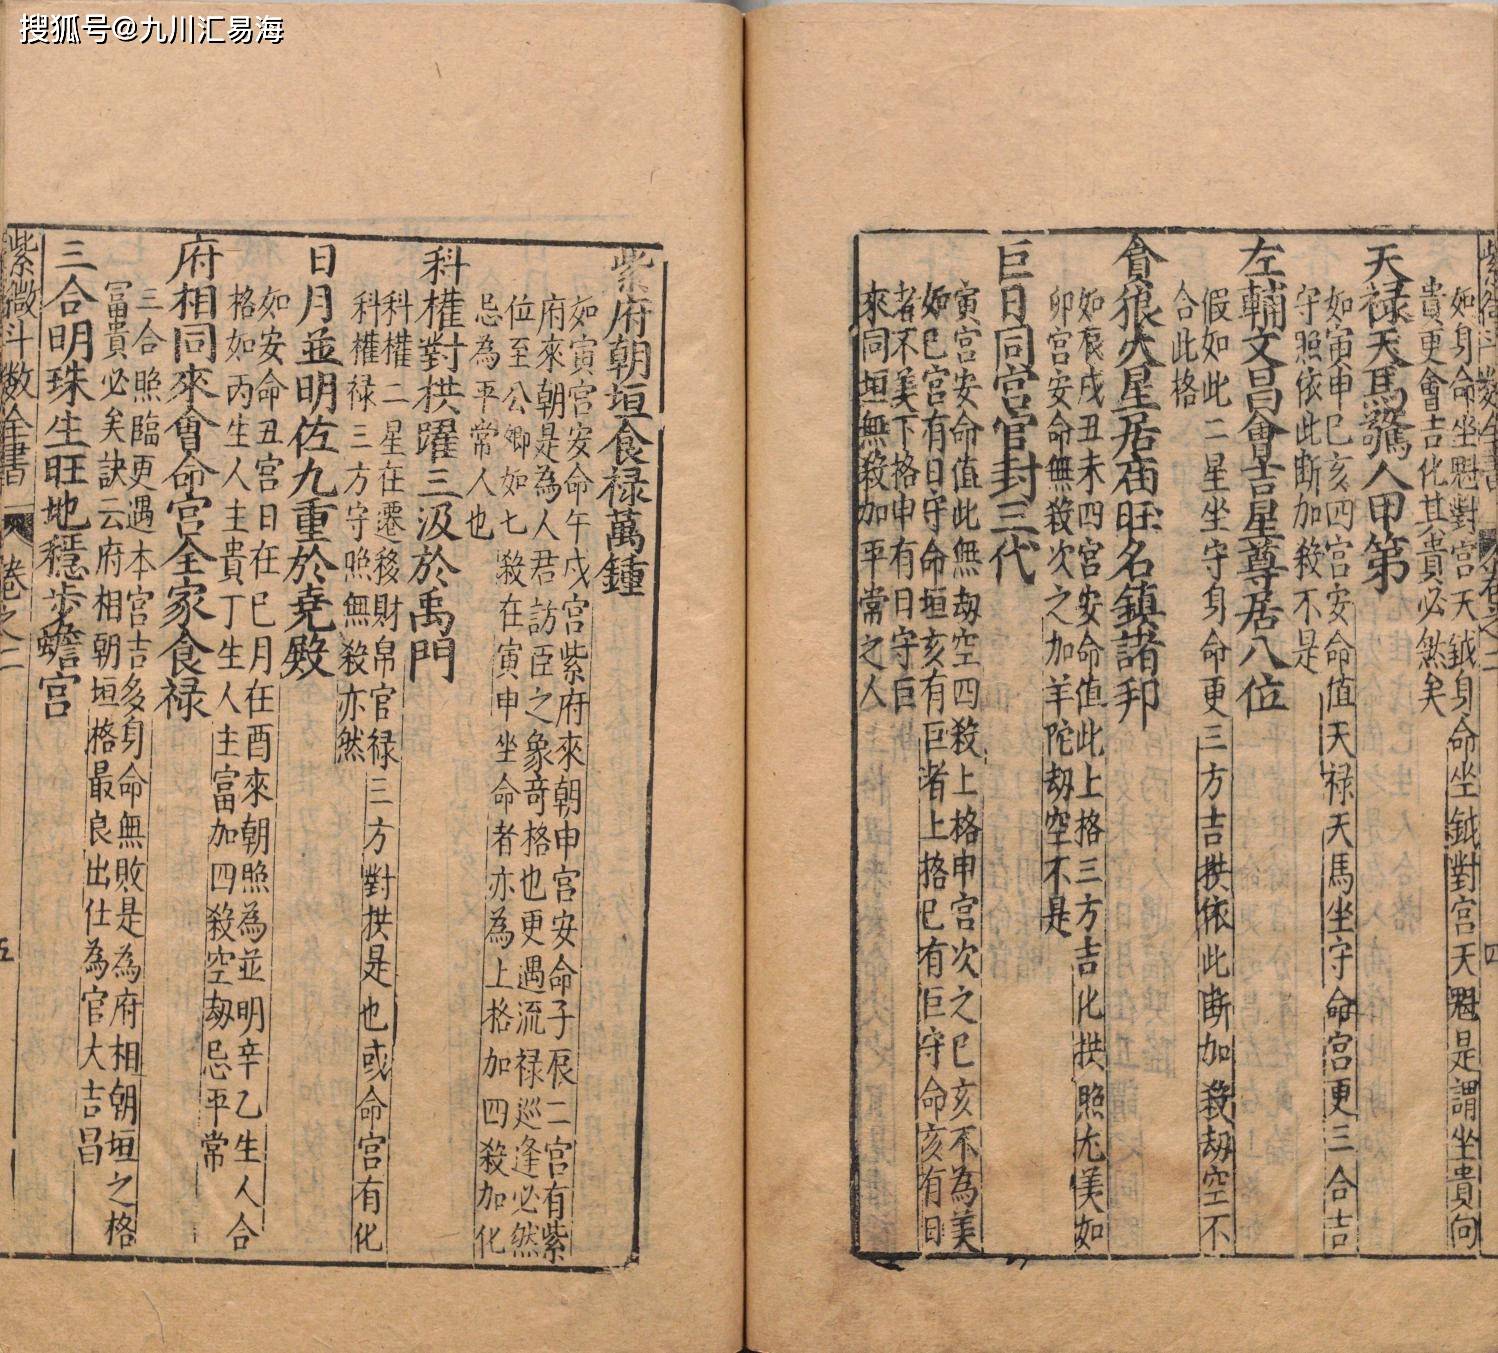 搜狐号@九川汇易海
紫微斗數全書 卷之二 四
如身命坐魁對宮天鉞身命坐鉞對宮天魁是謂坐貴向
貴更會吉化其貴必然矣
天禄天馬驚人甲第
如寅申巳亥四宮安命值天禄天馬坐守命宮更三合吉
守照依此斷加殺不是
左輔文昌會吉星尊居八位
假如此二星坐守身命更三方吉拱依此断加殺劫空不
合此格
貪狼火星居庙旺名鎮諸邦
如辰戌丑未四宮安命值此上格三方吉化拱照尤美如
卯宮安命無殺次之加羊陀劫空不是
巨日同宮官封三代
寅宮安命值此無劫空四殺上格申宮次之巳亥不為美
如巳宮有日守命垣亥有巨者上格巳有巨守命亥有日
者不美下格申有日守巨
來同垣無殺加平常之人
紫府朝垣食禄萬鍾
如寅宮安命午戌宮紫府來朝申宮安命子辰二宮有紫
府來朝是為人君訪臣之象奇格也更遇流禄巡逢必然
位至公卿如七殺在寅申坐命者亦為上格加四殺加化
忌為平常人也
科權對拱躍三汲於禹門
科權二星在遷移財帛官禄三方對拱是也或命宮有化
科權禄三方守照無殺亦然
日月並明佐九重於堯殿
如安命丑宮日在巳月在酉來朝照為並明辛乙生人合
格如丙生人主貴丁生人主富加四殺空劫忌平常
府相同來會命宮全家食禄
三合照臨更遇本宮吉多身命無敗是為府相朝垣之格
富貴必矣訣云府相朝垣格最良出仕為官大吉昌
三合明珠生旺地穩步蟾宮
紫微斗數全書 卷之二 五